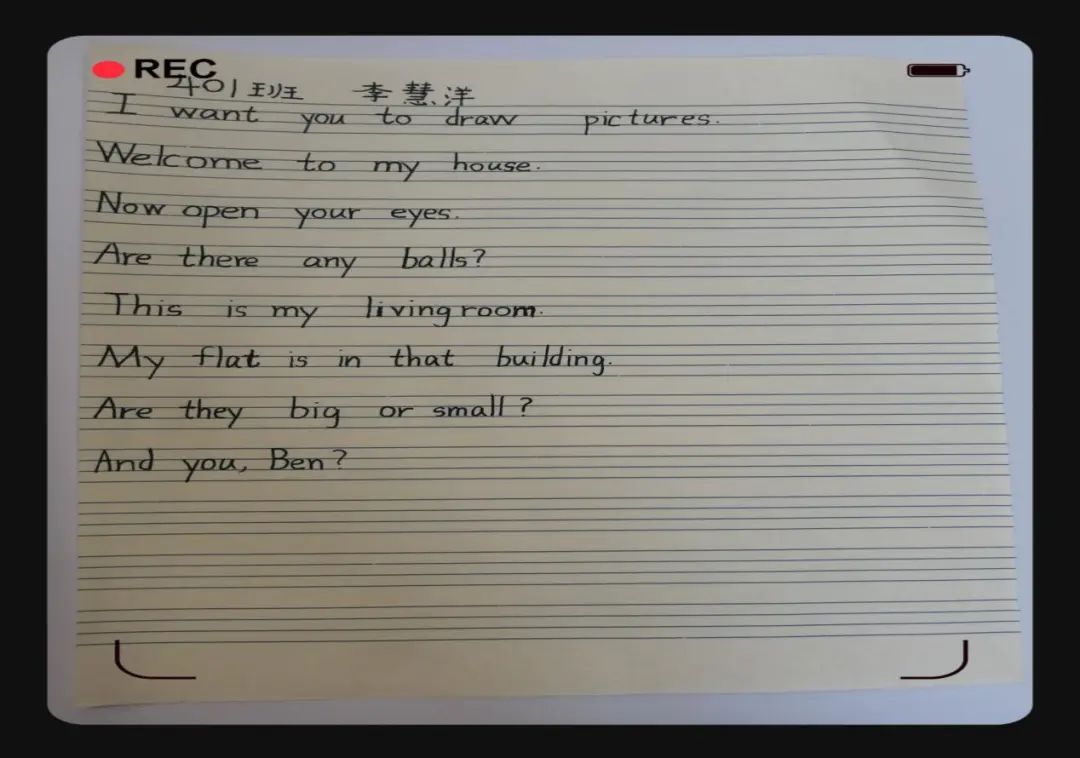 REC
401班 李慧洋
I want you to draw pictures.
Welcome to my house.
Now open your eyes.
Are there any balls?
This is my living room.
My flat is in that building.
Are they big or small?
And you, Ben?